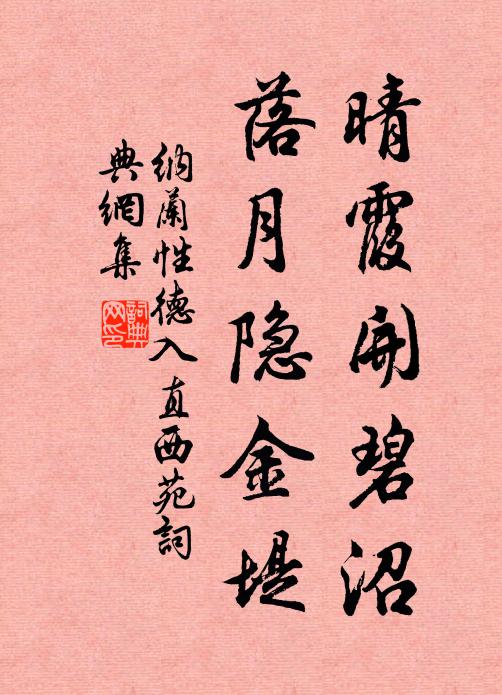 晴霞開碧沼
落月隐金堤
納蘭性德入直西苑詞
典網集
詞典
网印